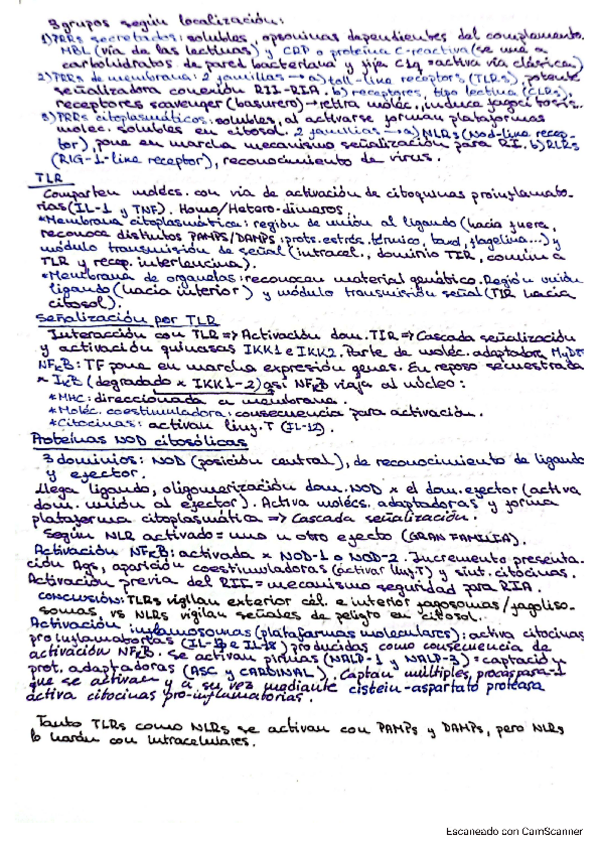 3 grupos según localización:
1) PRRs secretados: solubles, opsoninas dependientes del complemento.
MBL (vía de las lectinas) y CRP o proteína C-reactiva (se une a
carbohidratos de pared bacteriana y fija C1q = activa vía clásica)
2) PRRs de membrana: 2 familias → a) toll-line receptors (TLRs), potente
señalizadora conexión RII-RIA. b) receptores tipo lectina (CLRs),
receptores scavenger (basurero) → retira moléc., induce fagocitosis.
3) PRRs citoplasmáticos: solubles, al activarse forman plataformas
molec. solubles en citosol. 2 familias → a) NLRs (Nod-line recep-
tor), pone en marcha mecanismo señalización para RI. b) RLRs
(RIG-1-line receptor), reconocimiento de virus.
TLR
Comparten molécs. con vía de activación de citoquinas proinflamato-
rias (IL-1 y TNF). Homo/Hetero-dímeros.
*Membrana citoplasmática: región de unión al ligando (hacia fuera,
reconoce distintos PAMPs/DAMPs: prots. estrés térmico, flagelina...) y
módulo transmisión de señal (intracel., dominio TIR, común a
TLR y recep. interleucina).
*Membrana de organelas: reconozcan material genético. Región unión
ligando (hacia interior) y módulo transmisión señal (TIR hacia
citosol).
Señalización por TLR
Interacción con TLR => Activación dom. TIR => Cascada señalización
y activación quinasas IKK1 e IKK2. Parte de moléc. adaptadora MyD
NFκB: TF pone en marcha expresión genes. En reposo secuestrada
x IκB (degradado x IKK1-2) así NFκB viaja al núcleo:
*MHC: direccionada a membrana.
*Moléc. coestimuladora: consecuencia para activación.
*Citocinas: activan linf. T (IL-12).
Proteínas NOD citosólicas
3 dominios: NOD (posición central), de reconocimiento de ligando
y efector.
Llega ligando, oligomerización dom. NOD x el dom. efector (activa
dom. unión al efector). Activa molécs. adaptadoras y forma
plataforma citoplasmática => Cascada señalización.
Según NLR activado = uno u otro efecto (GRAN FAMILIA).
Activación NFκB: activada x NOD-1 o NOD-2. Incremento presenta-
ción Ags, aparición coestimuladoras (activar linf. T) y sint. citocinas.
Activación previa del RII = mecanismo seguridad para RIA.
CONCLUSIÓN: TLRs vigilan exterior cél. e interior fagosomas/fagoliso-
somas vs NLRs vigilan señales de peligro en citosol.
Activación inflamosomas (plataformas moleculares): activa citocinas
proinflamatorias (IL-1β e IL-18) producidas como consecuencia de
activación NFκB. Se activan pirinas (NALP-1 y NALP-3) = captación
prot. adaptadoras (ASC y CARDINAL). Captan múltiples procaspasa-1
que se activan y a su vez mediante cistein-aspartato proteasa
activa citocinas pro-inflamatorias.
Tanto TLRs como NLRs se activan con PAMPs y DAMPs, pero NLRs
lo harán con intracelulares.
Escaneado con CamScanner